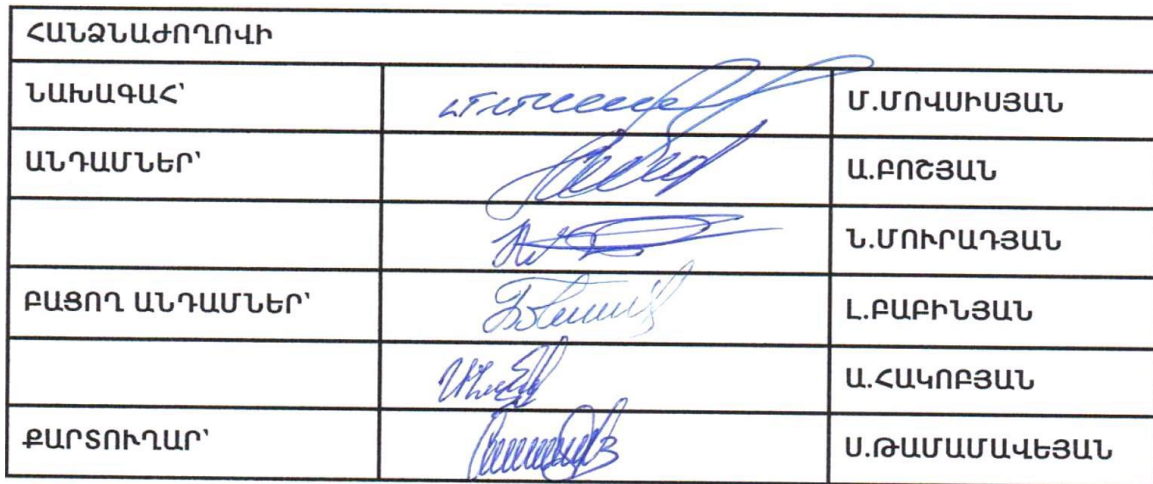 ՀԱՆՁՆԱԺՈՂՈՎԻ
ՆԱԽԱԳԱՀ՝ Մ.ՄՈՎՍԻՍՅԱՆ
ԱՆԴԱՄՆԵՐ՝ Ա.ԲՈՇՅԱՆ
Ն.ՄՈՒՐԱԴՅԱՆ
ԲԱՑՈՂ ԱՆԴԱՄՆԵՐ՝ Լ.ԲԱԲԻՆՅԱՆ
Ա.ՀԱԿՈԲՅԱՆ
ՔԱՐՏՈՒՂԱՐ՝ Ս.ԹԱՄԱՄԱՎԵՅԱՆ